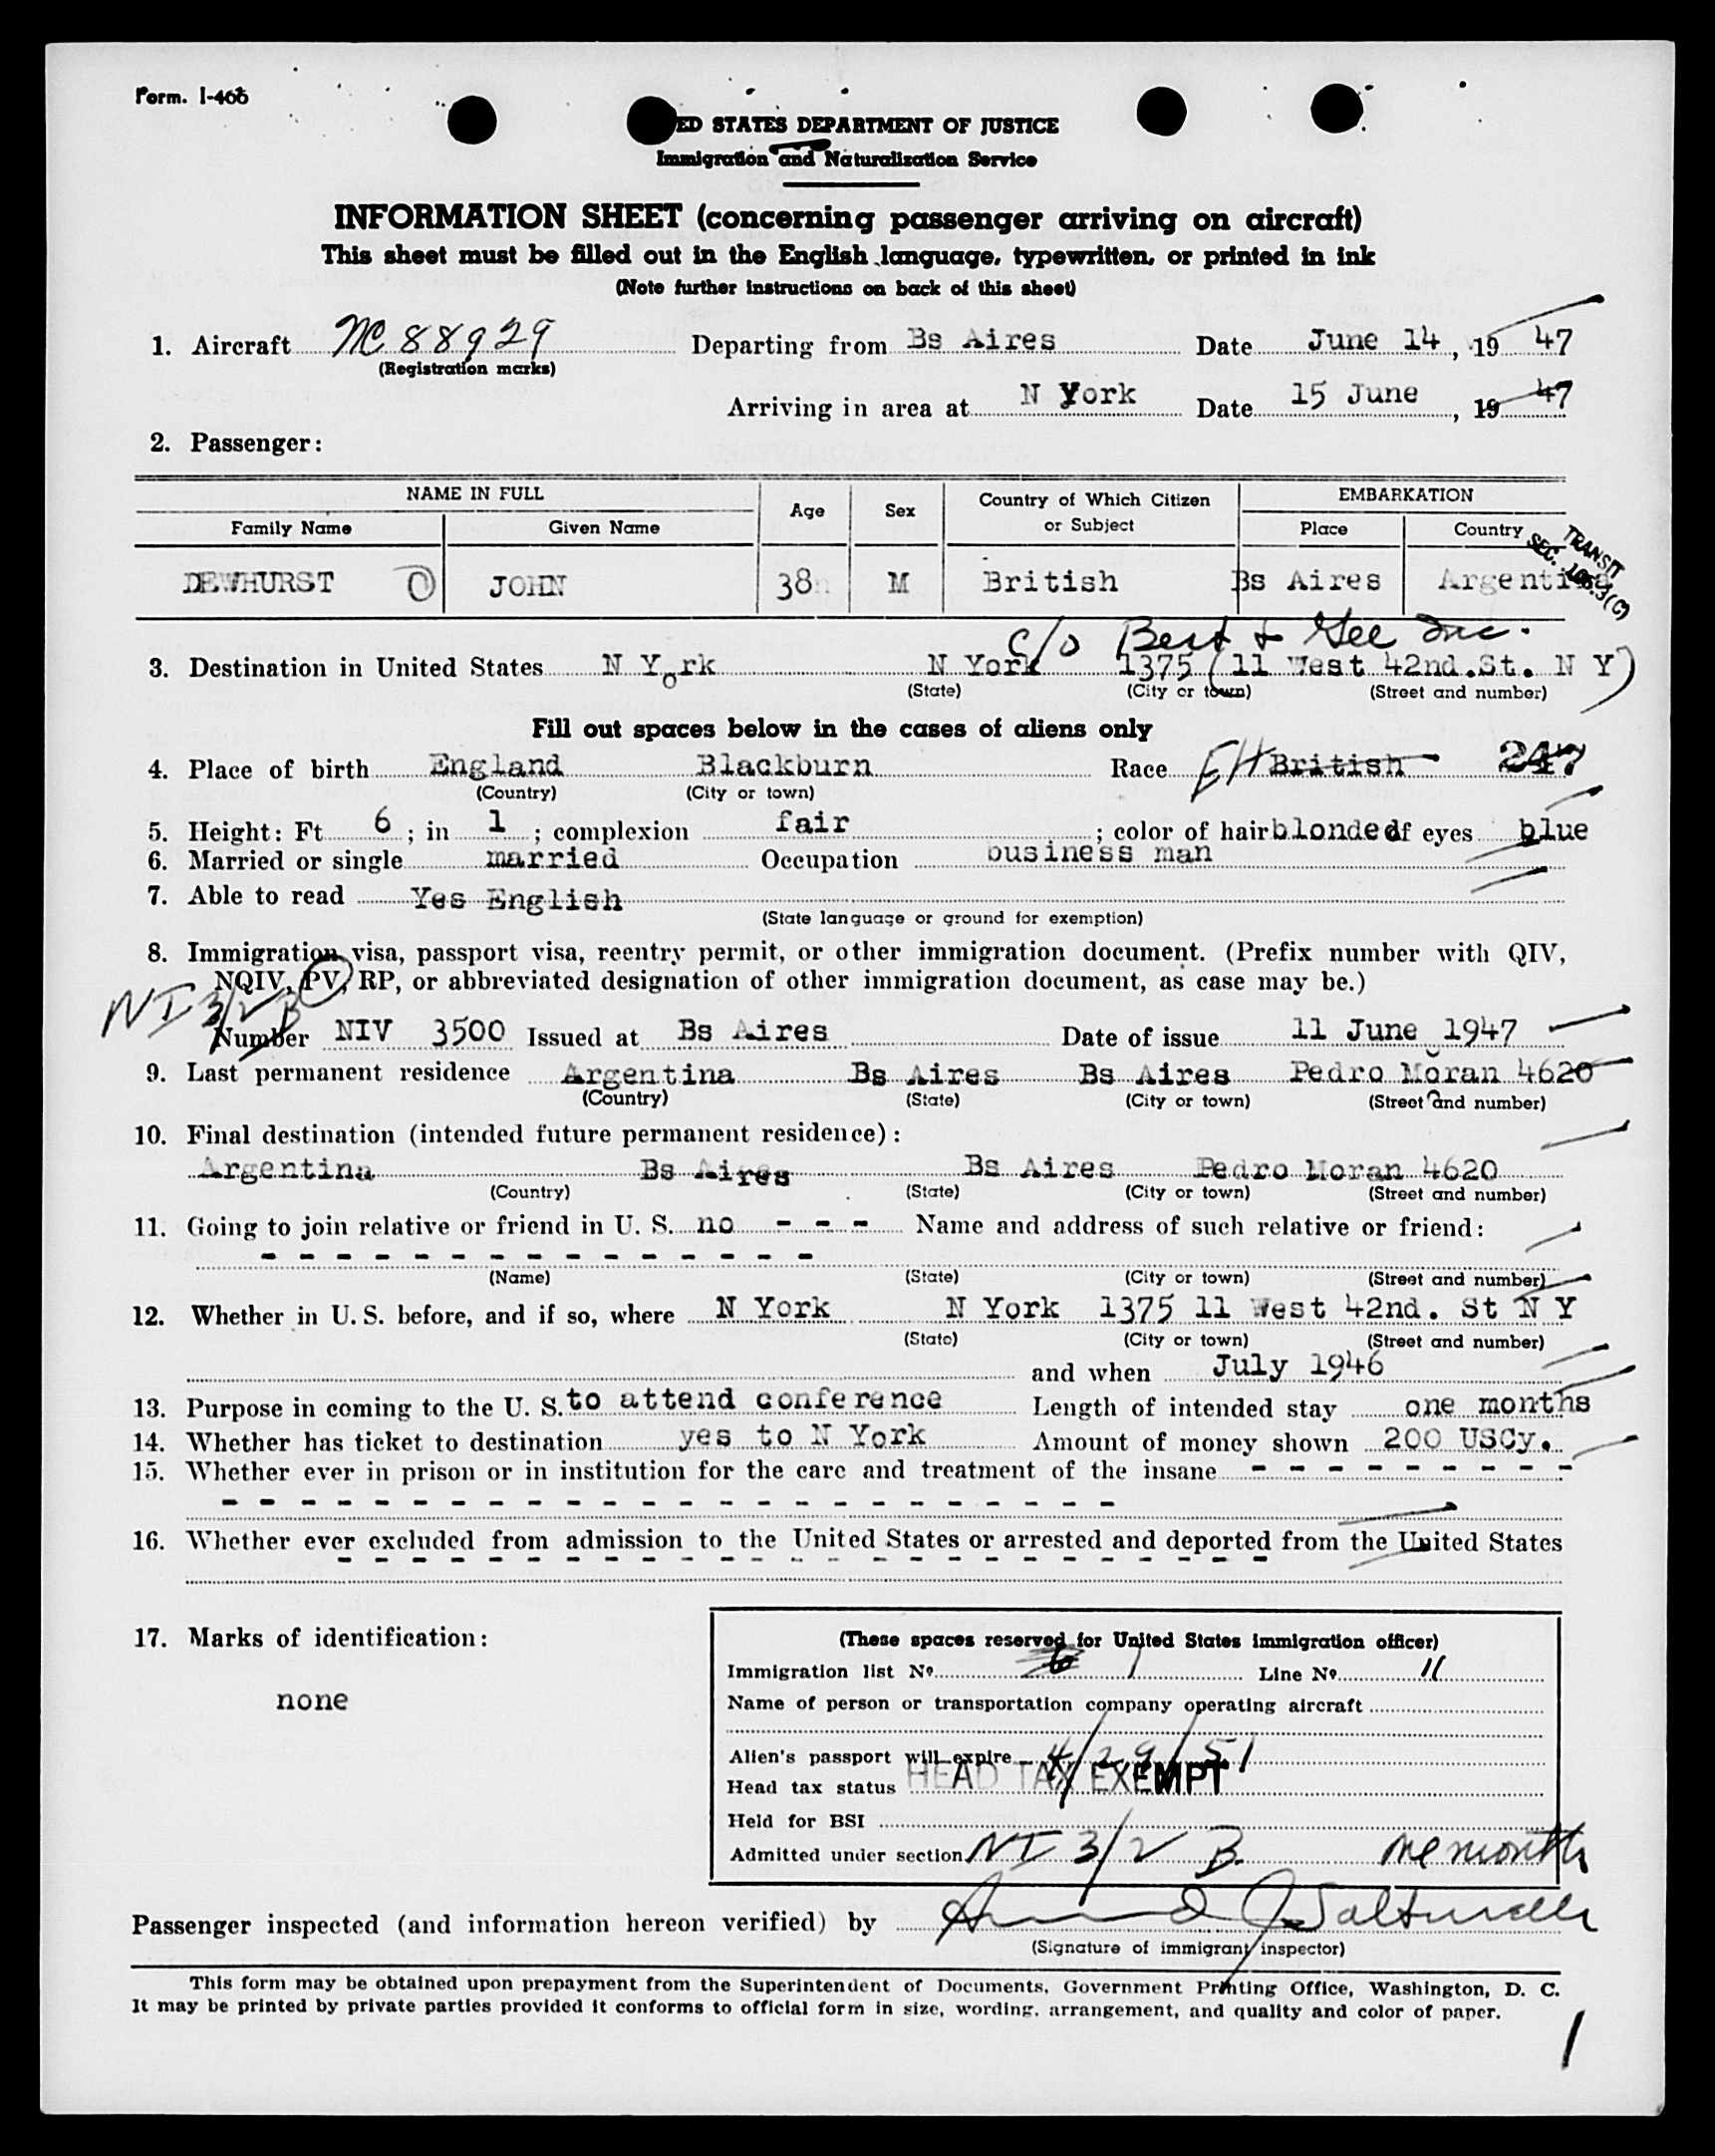 Form. I-466
ED STATES DEPARTMENT OF JUSTICE
Immigration and Naturalization Service
INFORMATION SHEET (concerning passenger arriving on aircraft)
This sheet must be filled out in the English language, typewritten, or printed in ink
(Note further instructions on back of this sheet)
1. Aircraft NC 88929 Departing from Bs Aires Date June 14, 19 47
(Registration marks)
Arriving in area at N York Date 15 June, 19 47
2. Passenger:
NAME IN FULL Age Sex Country of Which Citizen or Subject EMBARKATION
Family Name Given Name Place Country
TRANSIT
SEC. 105.3(C)
DEWHURST O JOHN 38 M British Bs Aires Argentina
c/o Best & Gee Inc.
3. Destination in United States N York N York 1375 (11 West 42nd.St. N Y)
(State) (City or town) (Street and number)
Fill out spaces below in the cases of aliens only
4. Place of birth England Blackburn Race British 247
(Country) (City or town)
5. Height: Ft 6 ; in 1 ; complexion fair ; color of hair blonde of eyes blue
6. Married or single married Occupation business man
7. Able to read Yes English
(State language or ground for exemption)
8. Immigration visa, passport visa, reentry permit, or other immigration document. (Prefix number with QIV,
NQIV, PV, RP, or abbreviated designation of other immigration document, as case may be.)
NI 3/2 B
Number NIV 3500 Issued at Bs Aires Date of issue 11 June 1947
9. Last permanent residence Argentina Bs Aires Bs Aires Pedro Moran 4620
(Country) (State) (City or town) (Street and number)
10. Final destination (intended future permanent residence):
Argentina Bs Aires Bs Aires Pedro Moran 4620
(Country) (State) (City or town) (Street and number)
11. Going to join relative or friend in U. S. no - - - Name and address of such relative or friend:
- - - - - - - - - - - - - - -
(Name) (State) (City or town) (Street and number)
12. Whether in U. S. before, and if so, where N York N York 1375 11 West 42nd. St N Y
(State) (City or town) (Street and number)
and when July 1946
13. Purpose in coming to the U. S. to attend conference Length of intended stay one months
14. Whether has ticket to destination yes to N York Amount of money shown 200 USCy.
15. Whether ever in prison or in institution for the care and treatment of the insane - - - - - - - - -
- - - - - - - - - - - - - - - - - - - - - - - -
16. Whether ever excluded from admission to the United States or arrested and deported from the United States
- - - - - - - - - - - - - - - - - - - - - - - - -
17. Marks of identification:
none
(These spaces reserved for United States immigration officer)
Immigration list No. 1 Line No. 11
Name of person or transportation company operating aircraft
Alien's passport will expire 4/29/51
Head tax status HEAD TAX EXEMPT
Held for BSI
Admitted under section NI 3/2 B. one month
Passenger inspected (and information hereon verified) by
(Signature of immigrant inspector)
This form may be obtained upon prepayment from the Superintendent of Documents, Government Printing Office, Washington, D. C.
It may be printed by private parties provided it conforms to official form in size, wording, arrangement, and quality and color of paper.
1